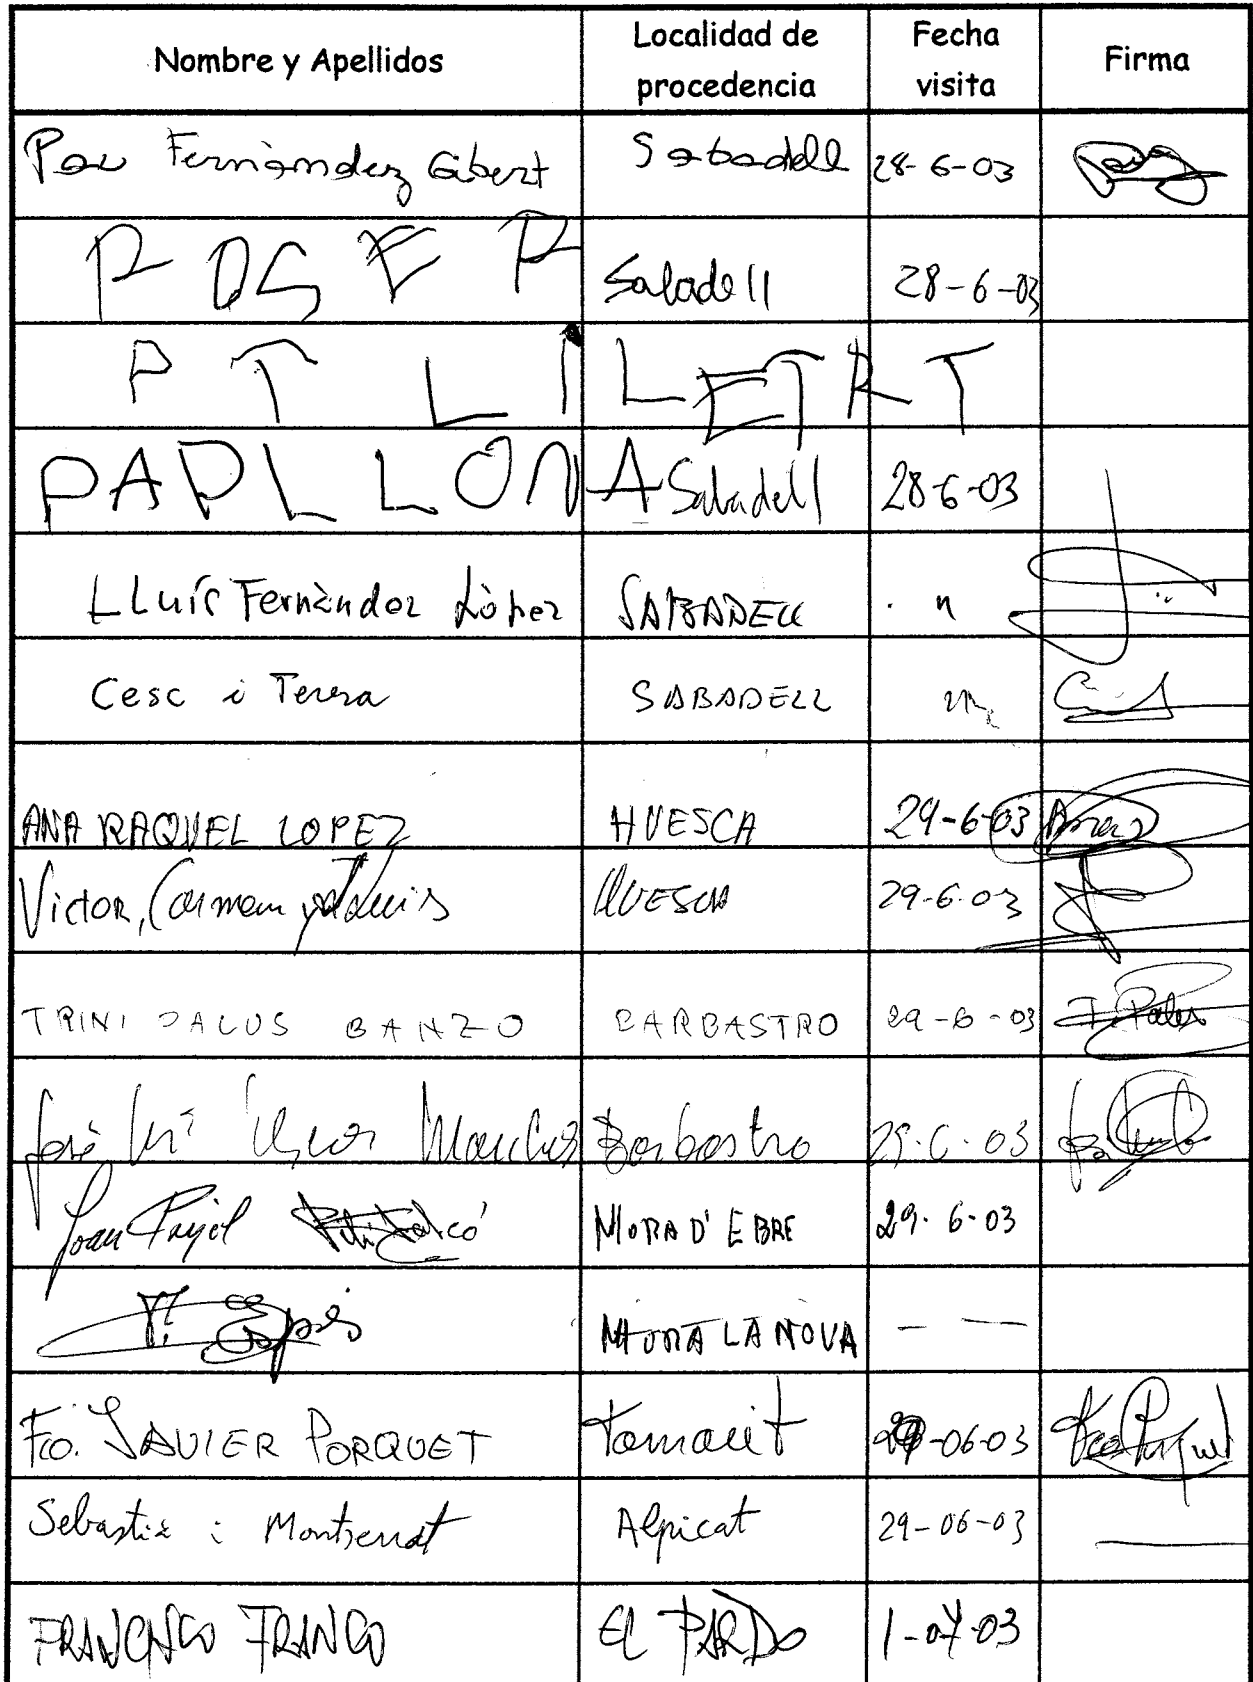 Nombre y Apellidos Localidad de procedencia Fecha visita Firma
Pau Fernàndez Gibert Sabadell 28-6-03
ROSER Sabadell 28-6-03
PT LILETRT
PAPLLONA Sabadell 28-6-03
LLuís Fernàndez López SABADELL "
Cesc i Teresa SABADELL "
ANA RAQUEL LOPEZ HUESCA 29-6-03
Victor, Carmen y Luis HUESCA 29-6-03
TRINI PALUS BANZO BARBASTRO 29-6-03 T. Palus
José Mª Barbastro 29-6-03
Joan Pujol MORA D'EBRE 29-6-03
Mª Espés MORA LA NOVA — —
Fco. JAVIER PORQUET Tamarit 29-06-03 Fco Porquet
Sebastià i Montserrat Alpicat 29-06-03
FRANCISCO FRANCO EL PARDO 1-07-03